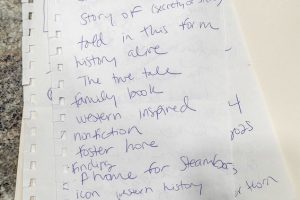 Story of (secretly or story)
told in this form
history alive
The true tale
family book
western inspired 4
nonfiction
foster home
finding
A home for Steamboats
icon western history